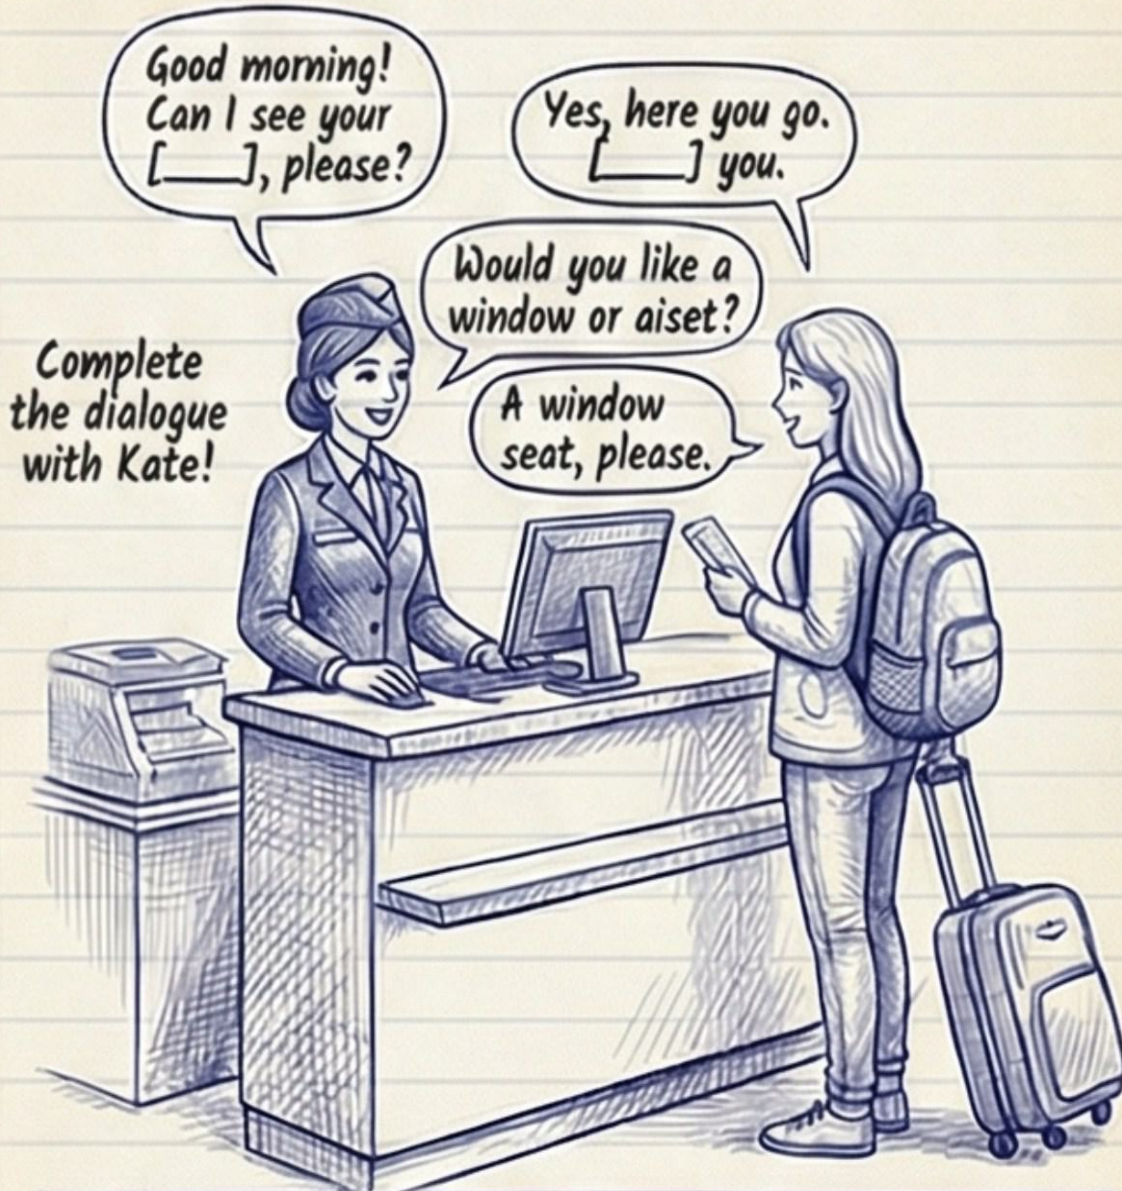 Good morning!
Can I see your
[____], please?
Yes, here you go.
[____] you.
Would you like a
window or aiset?
A window
seat, please.
Complete
the dialogue
with Kate!